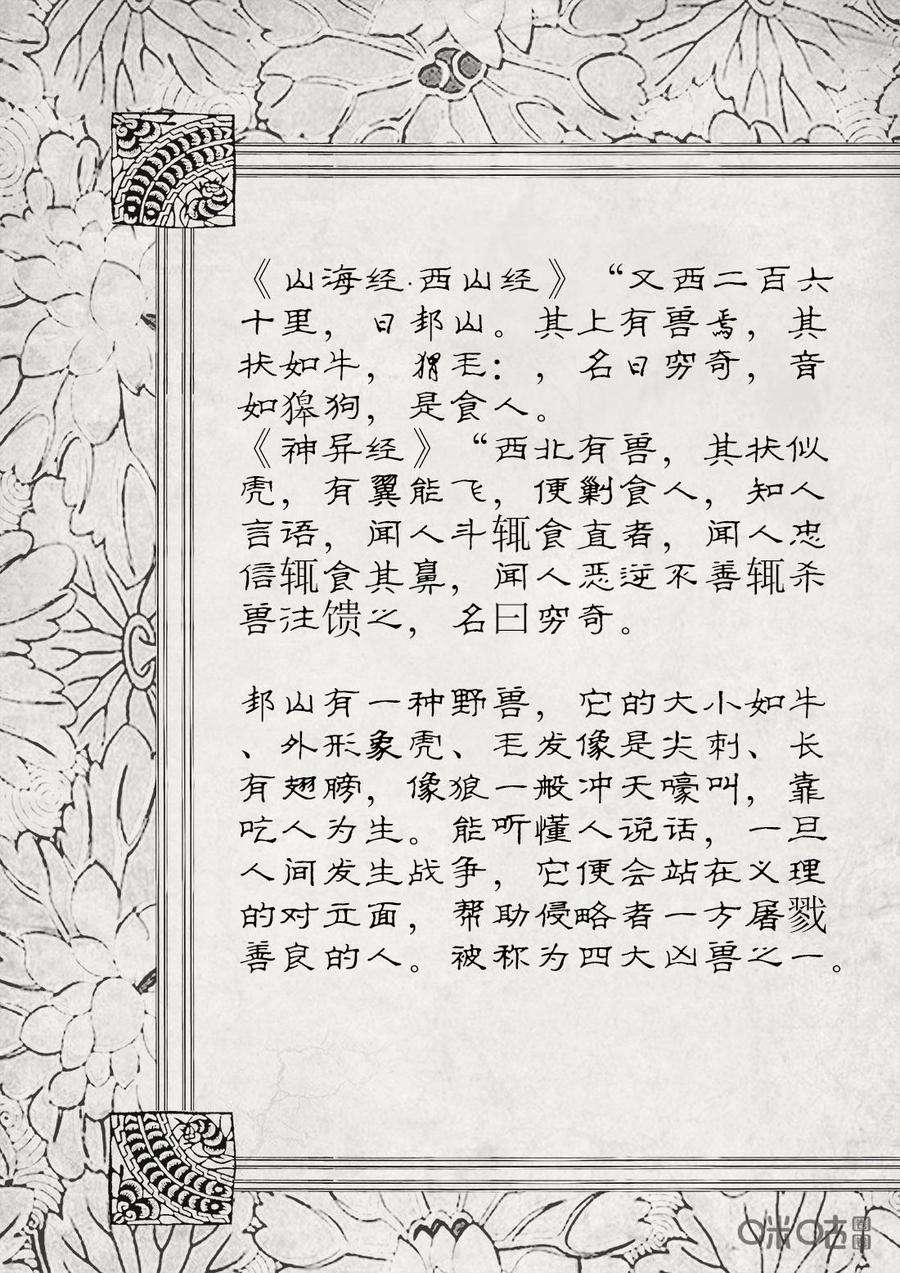 《山海经·西山经》“又西二百六
十里，曰邽山。其上有兽焉，其
状如牛，猬毛：，名曰穷奇，音
如獆狗，是食人。
《神异经》“西北有兽，其状似
虎，有翼能飞，便剿食人，知人
言语，闻人斗辄食直者，闻人忠
信辄食其鼻，闻人恶逆不善辄杀
兽往馈之，名曰穷奇。
邽山有一种野兽，它的大小如牛
、外形象虎、毛发像是尖刺、长
有翅膀，像狼一般冲天嚎叫，靠
吃人为生。能听懂人说话，一旦
人间发生战争，它便会站在义理
的对立面，帮助侵略者一方屠戮
善良的人。被称为四大凶兽之一。
咪咕圈圈